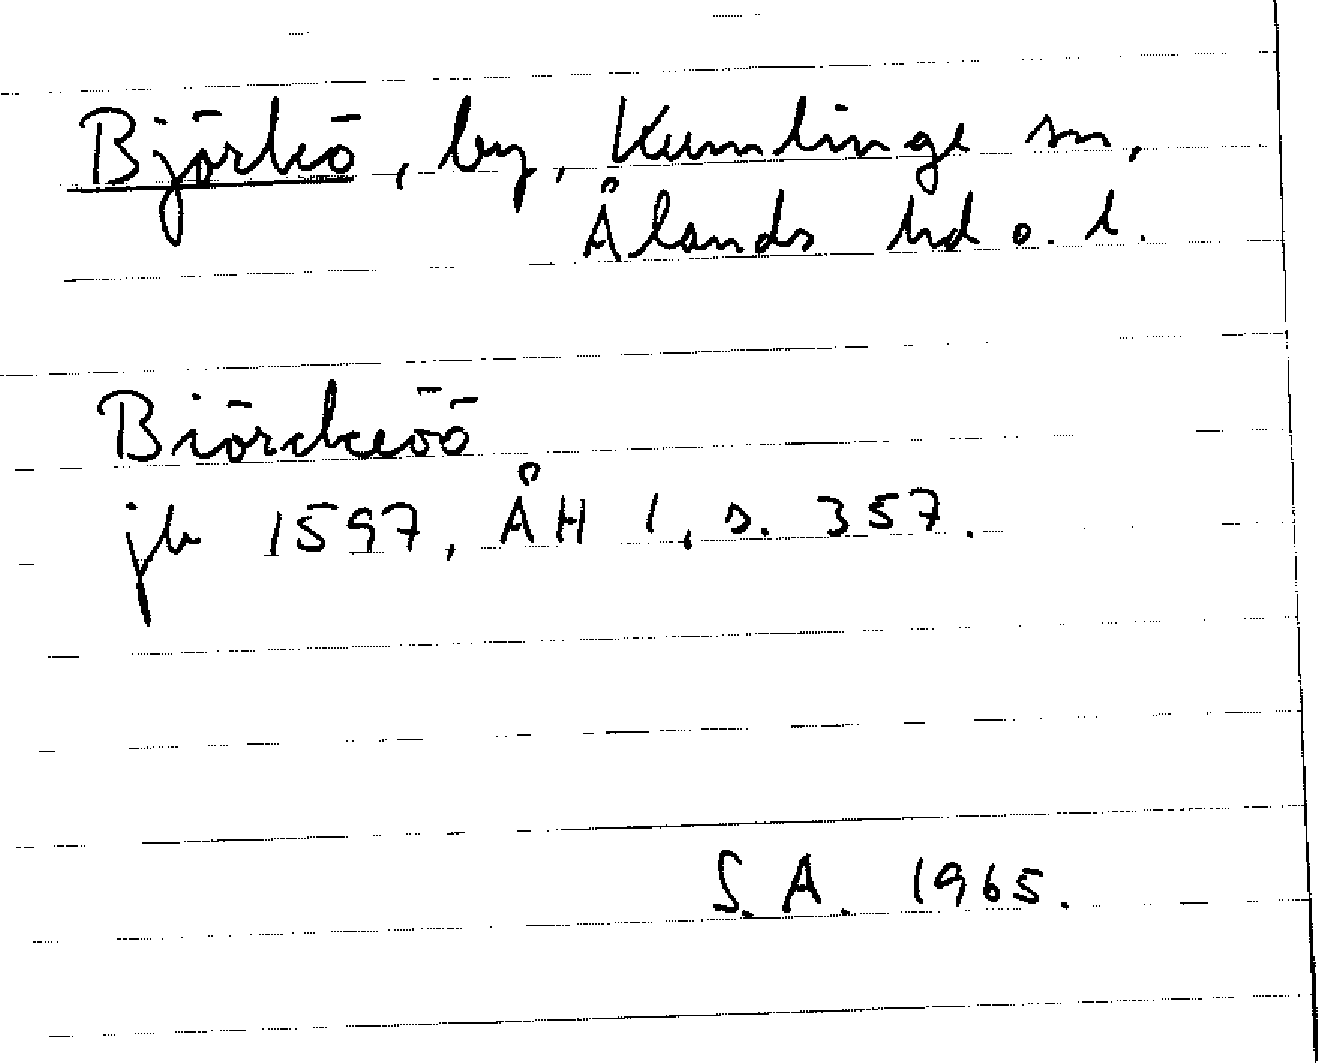 Björkö, by, Kumlinge sn,
Ålands hd o. l.
Biörckeöö
jb 1597, ÅH 1, s. 357.
S. A. 1965.